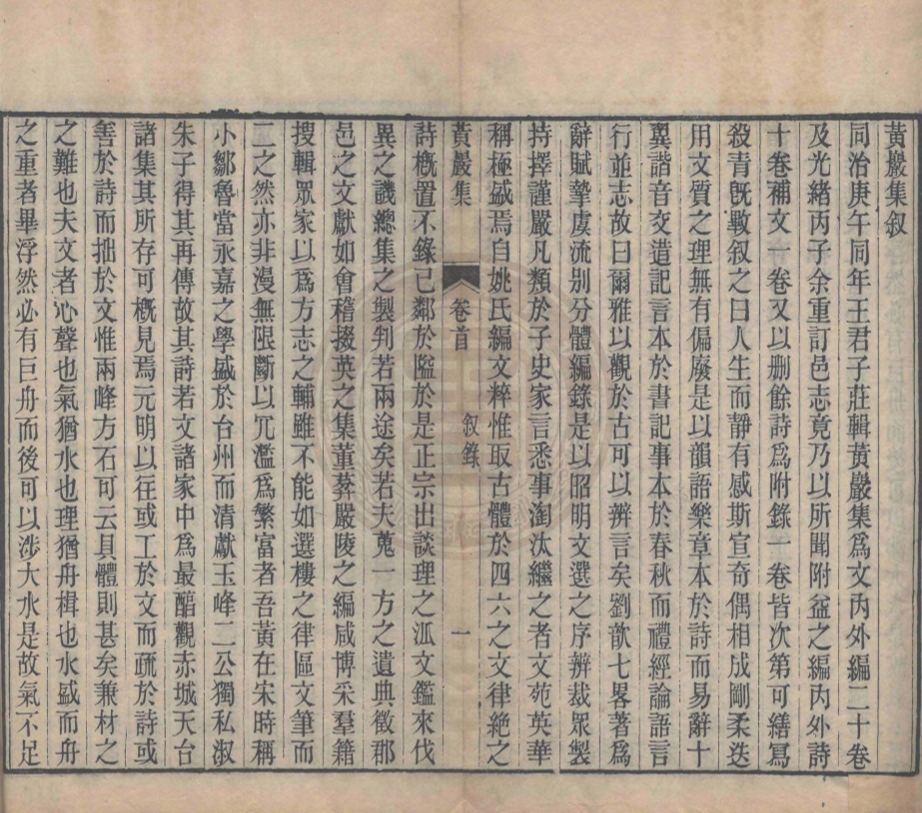 黃巖集叙
同治庚午同年王君子莊輯黃巖集爲文內外編二十卷
及光緒丙子余重訂邑志竟乃以所聞附益之編內外詩
十卷補文一卷又以刪餘詩爲附錄一卷皆次第可繕寫
殺青旣斁叙之曰人生而靜有感斯宣奇偶相成剛柔迭
用文質之理無有偏廢是以韻語樂章本於詩而易辭十
翼諧音交遣記言本於書記事本於春秋而禮經論語言
行並志故曰爾雅以觀於古可以辨言矣劉歆七畧著爲
辭賦摯虞流別分體編錄是以昭明文選之序辨裁眾製
持擇謹嚴凡類於子史家言悉事淘汰繼之者文苑英華
稱極盛焉自姚氏編文粹惟取古體於四六之文律絶之
黃巖集
卷首
叙錄
一
詩槪置不錄已鄰於隘於是正宗出談理之派文鑑來伐
異之譏總集之製判若兩途矣若夫蒐一方之遺典徵郡
邑之文獻如會稽掇英之集董棻嚴陵之編咸博采羣籍
搜輯眾家以爲方志之輔雖不能如選樓之律區文筆而
二之然亦非漫無限斷以冗濫爲繁富者吾黃在宋時稱
小鄒魯當永嘉之學盛於台州而清獻玉峰二公獨私淑
朱子得其再傳故其詩若文諸家中爲最醇觀赤城天台
諸集其所存可槪見焉元明以往或工於文而疏於詩或
善於詩而拙於文惟兩峰方石可云具體則甚矣兼材之
之難也夫文者心聲也氣猶水也理猶舟楫也水盛而舟
之重者畢浮然必有巨舟而後可以涉大水是故氣不足